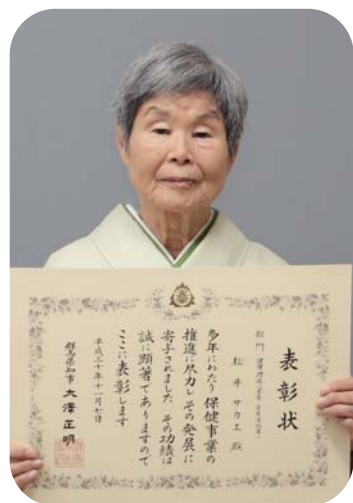 表彰状
松井サカエ殿
多年にわたり保健事業の
推進に尽力しその発展に
寄与されました その功績は
誠に顕著でありますので
ここに表彰します
平成三十年十一月七日
群馬県知事 大澤正明